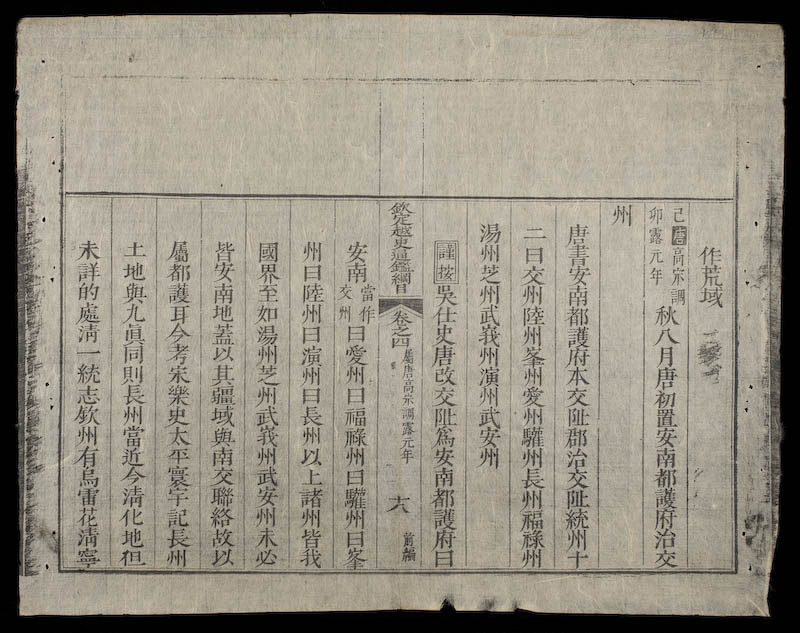 作荒域
己卯唐高宗調露元年秋八月唐初置安南都護府治交
州
唐書安南都護府本交阯郡治交阯統州十
二曰交州陸州峯州愛州驩州長州福祿州
湯州芝州武峩州演州武安州
謹按吳仕史唐改交阯爲安南都護府曰
欽定越史通鑑綱目卷之四屬唐高宗調露元年 前編
安南當作交州曰愛州曰福祿州曰驩州曰峯
州曰陸州曰演州曰長州以上諸州皆我
國界至如湯州芝州武峩州武安州未必
皆安南地蓋以其疆域與南交聯絡故以
屬都護耳今考宋樂史太平寰宇記長州
土地與九眞同則長州當近今清化地但
未詳的處淸一統志欽州有烏雷花淸寧